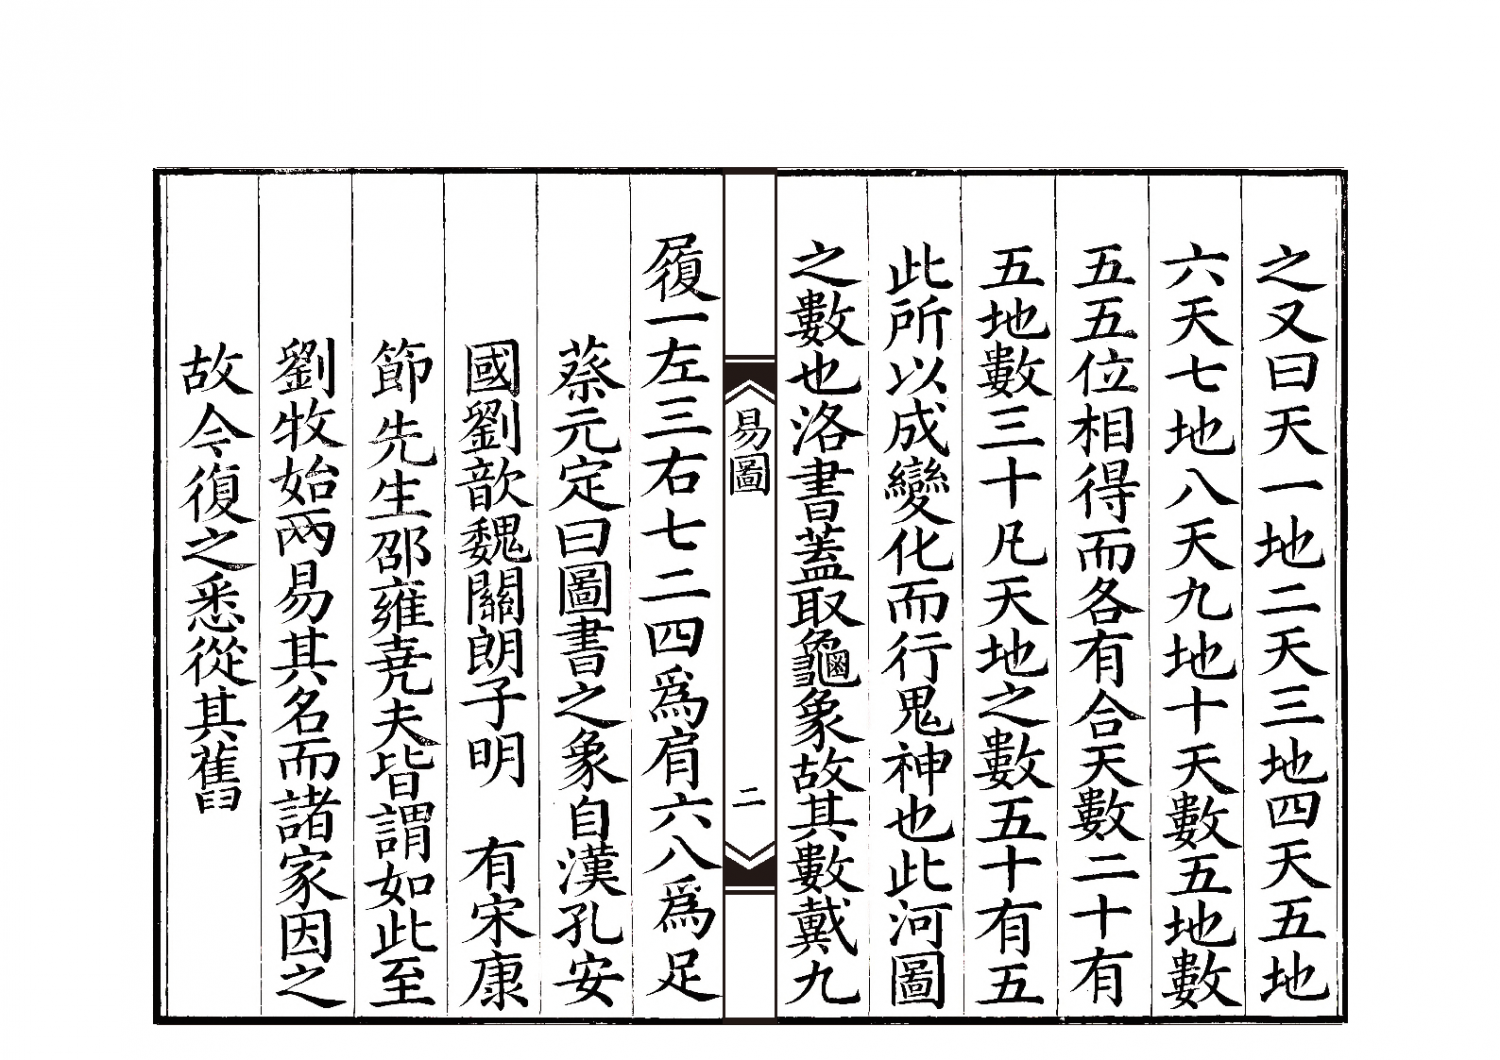 之又曰天一地二天三地四天五地
六天七地八天九地十天數五地數
五五位相得而各有合天數二十有
五地數三十凡天地之數五十有五
此所以成變化而行鬼神也此河圖
之數也洛書蓋取龜象故其數戴九
易圖
二
履一左三右七二四爲肩六八爲足
蔡元定曰圖書之象自漢孔安
國劉歆魏關朗子明　有宋康
節先生邵雍堯夫皆謂如此至
劉牧始兩易其名而諸家因之
故今復之悉從其舊